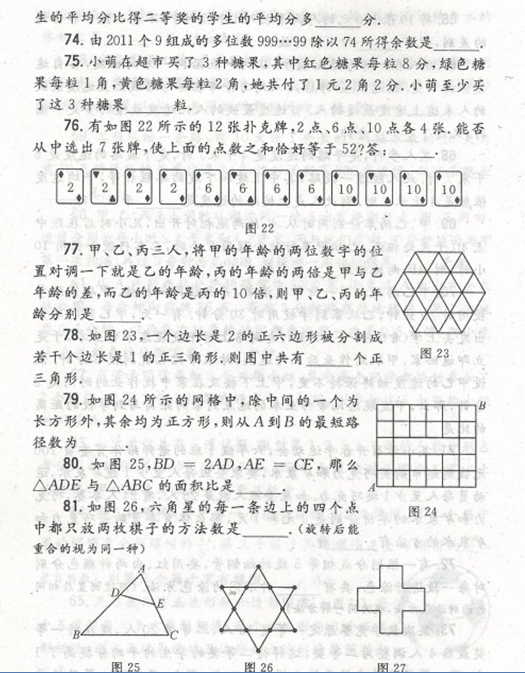 生的平均分比得二等奖的学生的平均分多______分.
74. 由 2011 个 9 组成的多位数 999…99 除以 74 所得余数是______.
75. 小萌在超市买了 3 种糖果,其中红色糖果每粒 8 分,绿色糖
果每粒 1 角,黄色糖果每粒 2 角,她共付了 1 元 2 角 2 分. 小萌至少买
了这 3 种糖果______粒.
76. 有如图 22 所示的 12 张扑克牌,2 点、6 点、10 点各 4 张. 能否
从中选出 7 张牌,使上面的点数之和恰好等于 52?答:______.
2 2 2 2 6 6 6 6 10 10 10 10
图 22
77. 甲、乙、丙三人,将甲的年龄的两位数字的位
置对调一下就是乙的年龄,丙的年龄的两倍是甲与乙
年龄的差,而乙的年龄是丙的 10 倍,则甲、乙、丙的年
龄分别是______.
图 23
78. 如图 23,一个边长是 2 的正六边形被分割成
若干个边长是 1 的正三角形. 则图中共有______个正
三角形.
79. 如图 24 所示的网格中,除中间的一个为
长方形外,其余均为正方形,则从 A 到 B 的最短路
径数为______.
B
A
图 24
80. 如图 25,BD = 2AD,AE = CE,那么
△ADE 与 △ABC 的面积比是______.
81. 如图 26,六角星的每一条边上的四个点
中都只放两枚棋子的方法数是______.(旋转后能
重合的视为同一种)
A
D
E
B
C
图 25
图 26
图 27